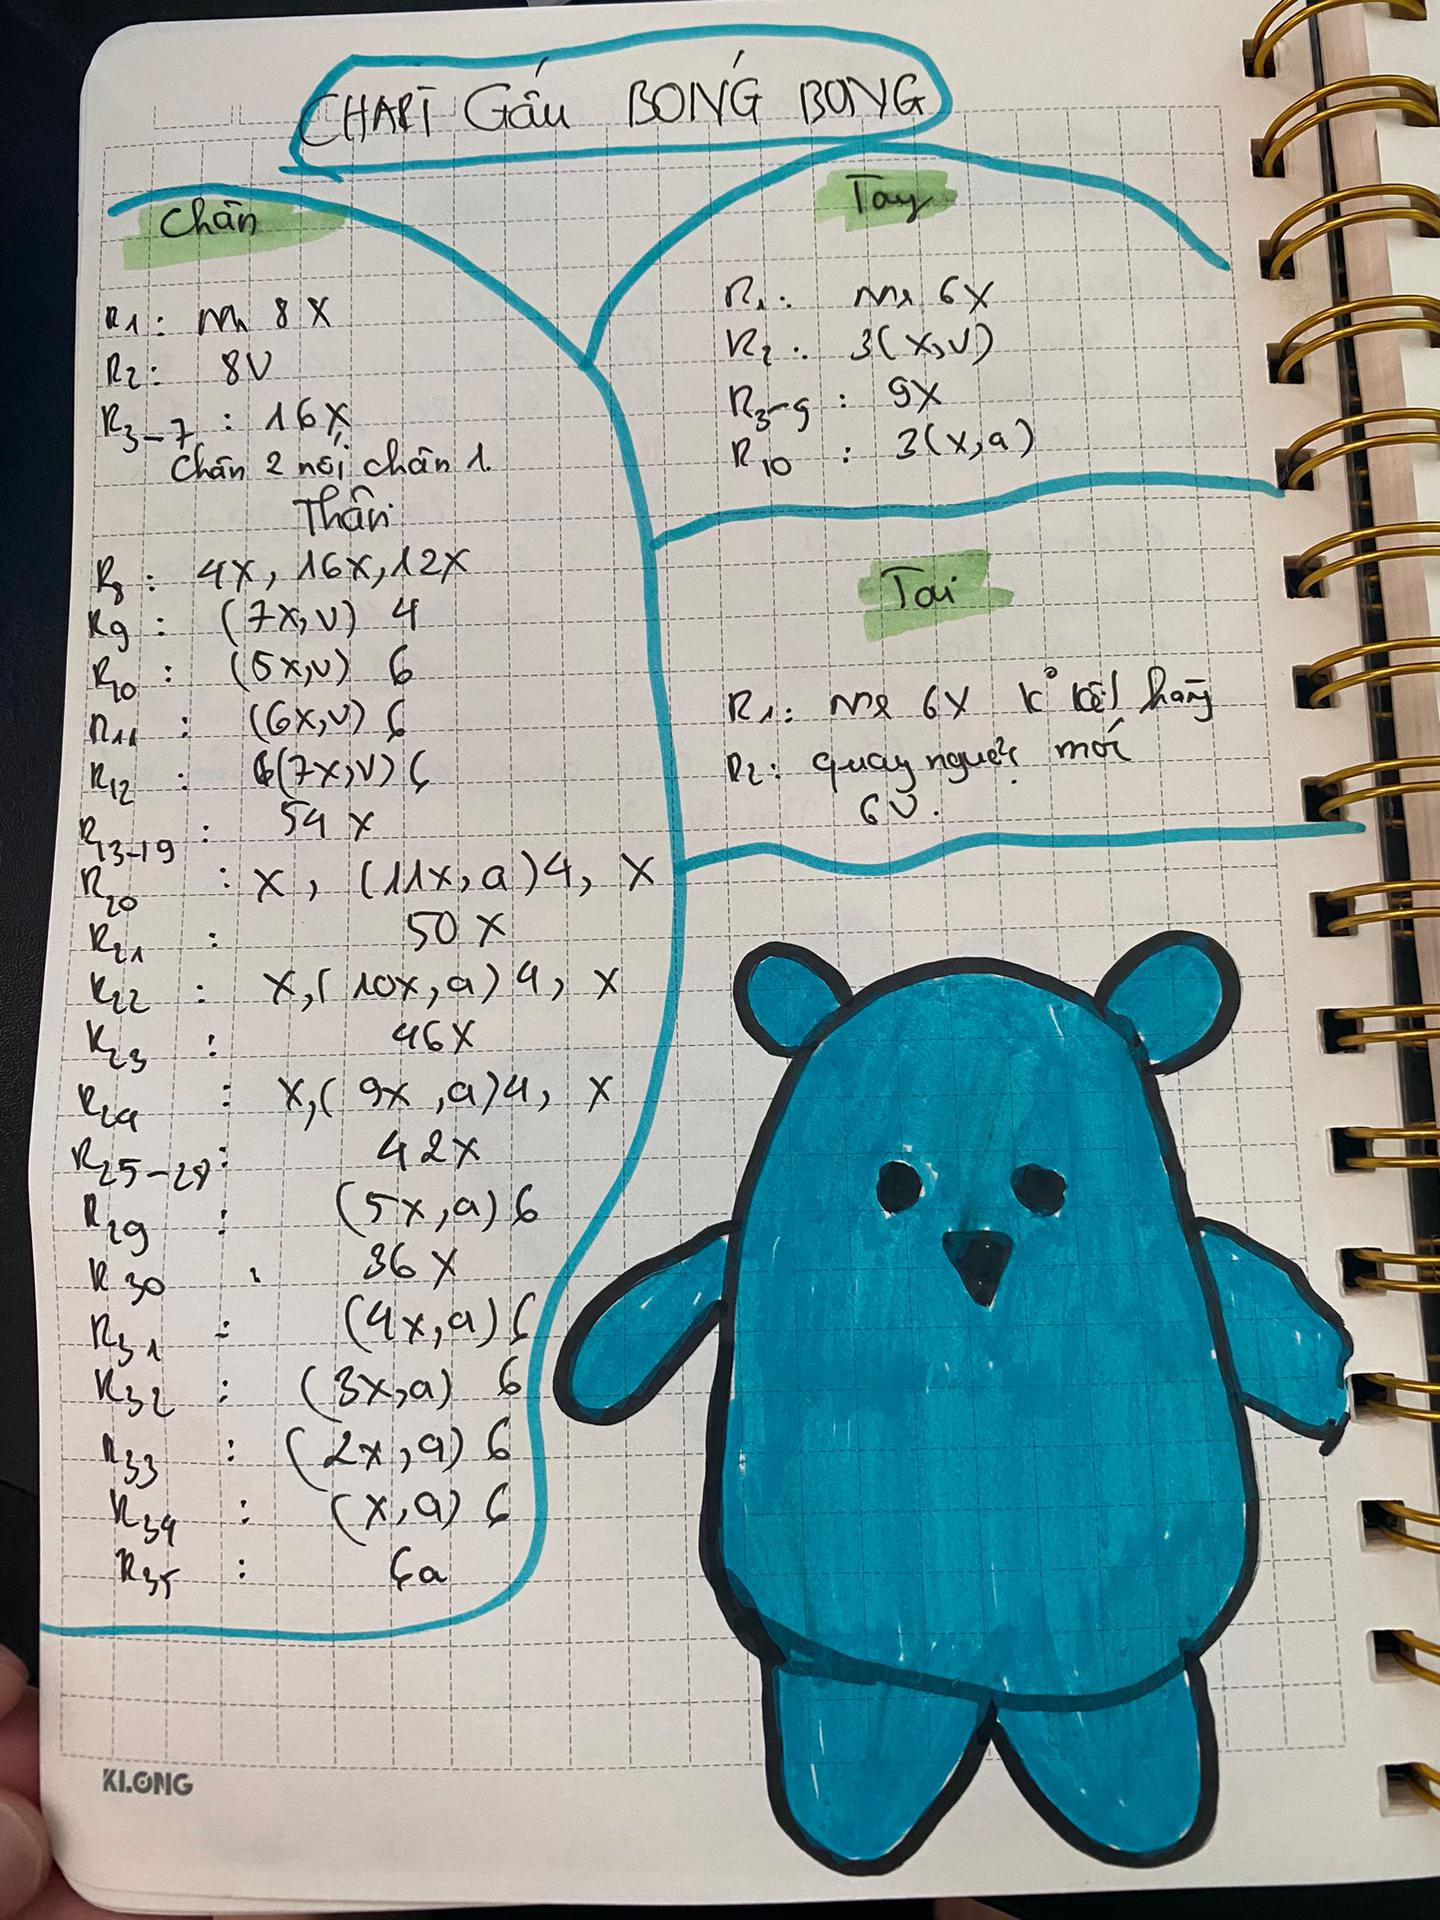 CHART Gấu BONG BONG
Chân
R1: mr 8X
R2: 8V
R3-7: 16X
Chân 2 nối chân 1.
Thân
R8: 4X, 16X, 12X
R9: (7X,V) 4
R10: (5X,V) 6
R11: (6X,V) 6
R12: (7X,V) 6
R13-19: 54X
R20: X, (11X,a)4, X
R21: 50X
R22: X,(10X,a)4, X
R23: 46X
R24: X,(9X,a)4, X
R25-28: 42X
R29: (5X,a) 6
R30: 36X
R31: (4X,a) 6
R32: (3X,a) 6
R33: (2X,a) 6
R34: (X,a) 6
R35: 6a
Tay
R1: mr 6X
R2: 3(X,V)
R3-9: 9X
R10: 3(X,a)
Tai
R1: mr 6X kº kết hàng
R2: quay ngược mói
6V.
KLONG